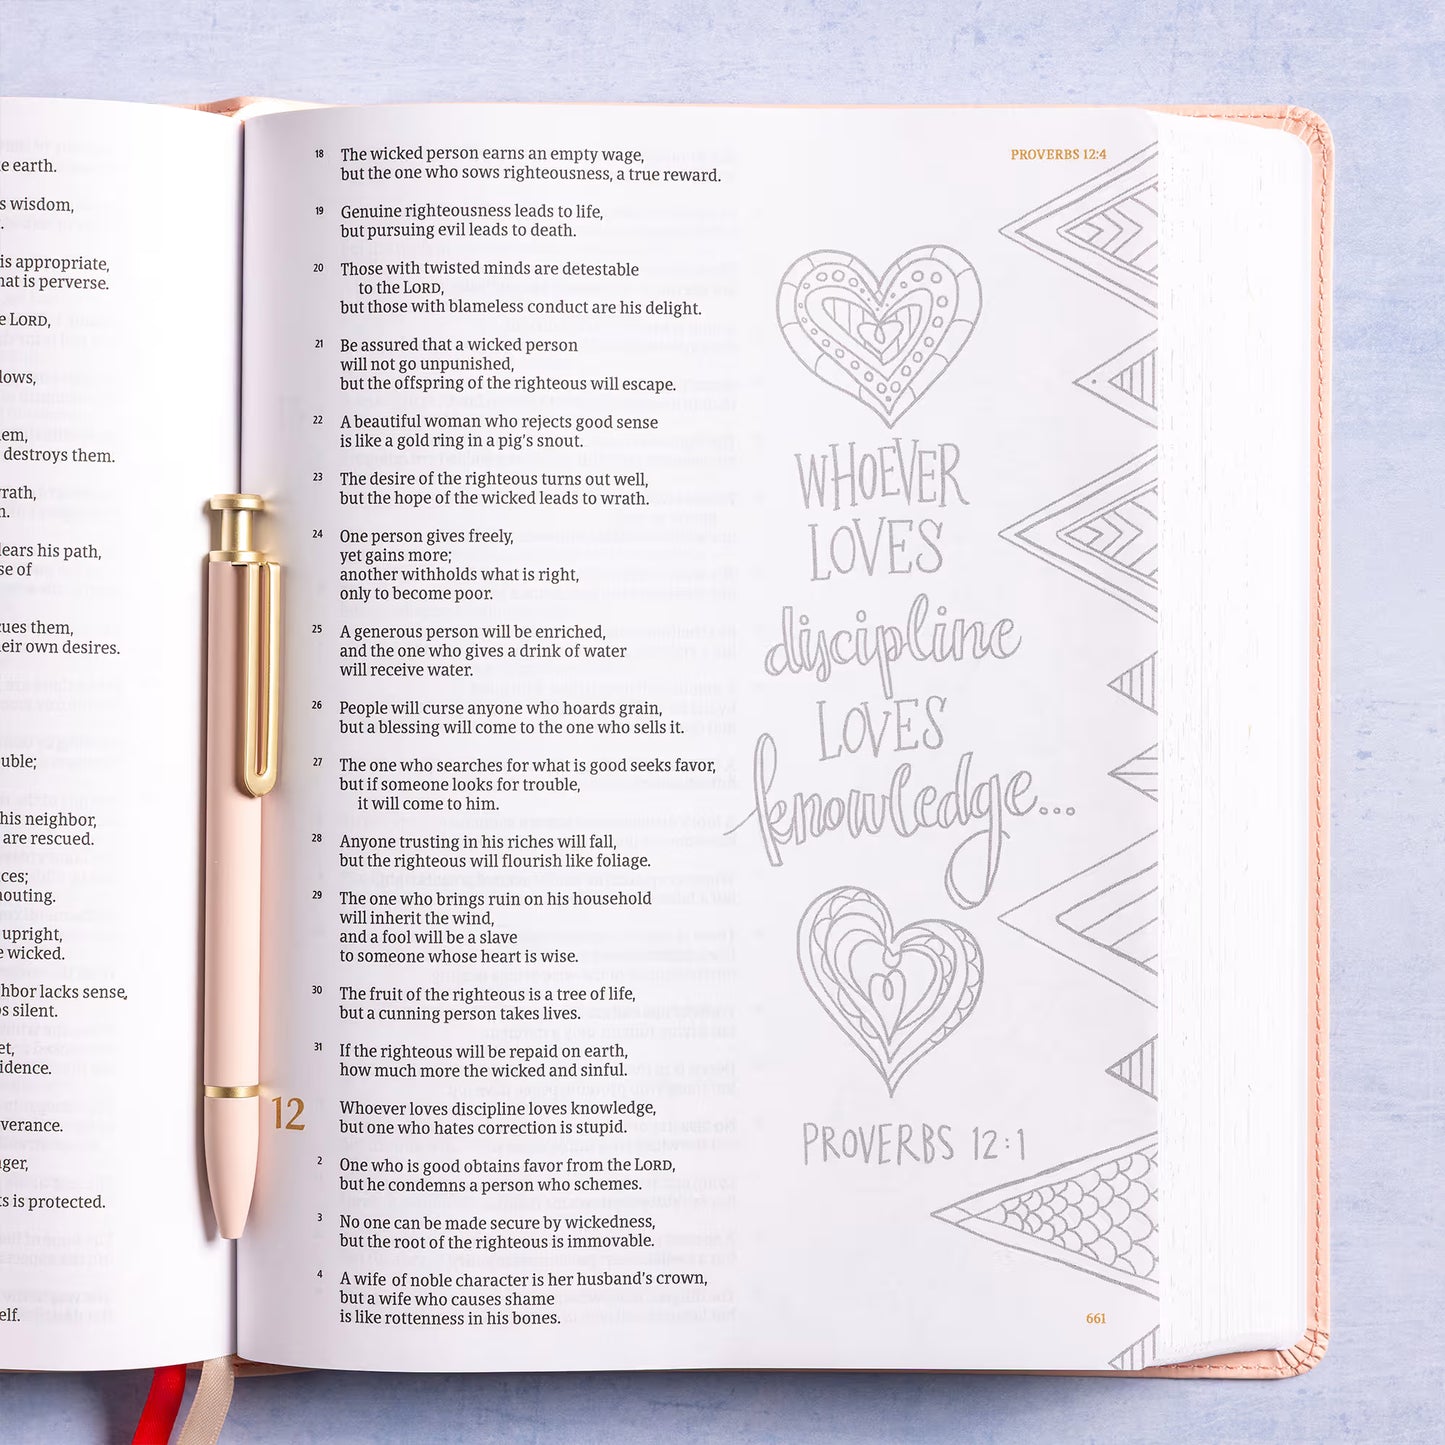 e earth.
s wisdom,
is appropriate,
hat is perverse.
e LORD,
lows,
em,
destroys them.
rath,
n.
lears his path,
se of
cues them,
eir own desires.
uble;
his neighbor,
are rescued.
ces;
houting.
upright,
e wicked.
hbor lacks sense,
s silent.
et,
idence.
verance.
ger,
ts is protected.
elf.
18 The wicked person earns an empty wage,
but the one who sows righteousness, a true reward.
19 Genuine righteousness leads to life,
but pursuing evil leads to death.
20 Those with twisted minds are detestable
to the LORD,
but those with blameless conduct are his delight.
21 Be assured that a wicked person
will not go unpunished,
but the offspring of the righteous will escape.
22 A beautiful woman who rejects good sense
is like a gold ring in a pig's snout.
23 The desire of the righteous turns out well,
but the hope of the wicked leads to wrath.
24 One person gives freely,
yet gains more;
another withholds what is right,
only to become poor.
25 A generous person will be enriched,
and the one who gives a drink of water
will receive water.
26 People will curse anyone who hoards grain,
but a blessing will come to the one who sells it.
27 The one who searches for what is good seeks favor,
but if someone looks for trouble,
it will come to him.
28 Anyone trusting in his riches will fall,
but the righteous will flourish like foliage.
29 The one who brings ruin on his household
will inherit the wind,
and a fool will be a slave
to someone whose heart is wise.
30 The fruit of the righteous is a tree of life,
but a cunning person takes lives.
31 If the righteous will be repaid on earth,
how much more the wicked and sinful.
12 Whoever loves discipline loves knowledge,
but one who hates correction is stupid.
2 One who is good obtains favor from the LORD,
but he condemns a person who schemes.
3 No one can be made secure by wickedness,
but the root of the righteous is immovable.
4 A wife of noble character is her husband's crown,
but a wife who causes shame
is like rottenness in his bones.
PROVERBS 12:4
WHOEVER
LOVES
discipline
LOVES
knowledge...
PROVERBS 12:1
661